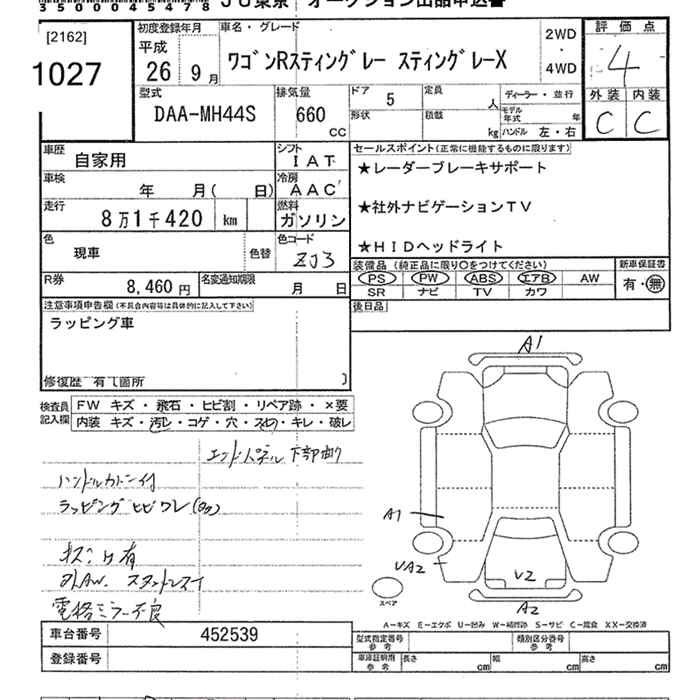 3 5 0 0 0 4 5 4 7 8
JU東京 オークション出品申込書
[2162]
1027
初度登録年月
平成
26 9月
車名・グレード
ワゴンRスティングレー スティングレーX
2WD
・
4WD
評価点
4
外装 内装
C C
型式
DAA-MH44S
排気量
660
CC
ドア
5
定員
人
形状
積載
kg
ディーラー・並行
モデル年式 年
ハンドル 左・右
車歴
自家用
シフト
IAT
車検
年 月( 日)
冷房
AAC
走行
8万1千420 km
燃料
ガソリン
色
現車
色替
色コード
ZJ3
R券
8,460円
名変通知期限
月 日
セールスポイント(正常に機能するものに限ります)
★レーダーブレーキサポート
★社外ナビゲーションTV
★HIDヘッドライト
装備品(純正品に限り○をつけてください)
PS PW ABS エアB AW
SR ナビ TV カワ
新車保証書
有・無
後日品
注意事項申告欄(不具合内容等は具体的に記入して下さい)
ラッピング車
修復歴 有(箇所 )
検査員
記入欄
FW キズ・飛石・ヒビ割・リペア跡・×要
内装 キズ・汚レ・コゲ・穴・スレ・キレ・破レ
エンドパネル下部曲り
ハンドルカバー付
ラッピング ヒビワレ
キズ凹有
電格ミラー不良
A1
A1
UA2
U2
A2
スペア
A-キズ E-エクボ U-凹み W-補修跡 S-サビ C-腐食 XX-交換済
車台番号
452539
登録番号
型式指定番号
参考
類別区分番号
参考
車庫証明用
参考
長さ cm
幅 cm
高さ cm